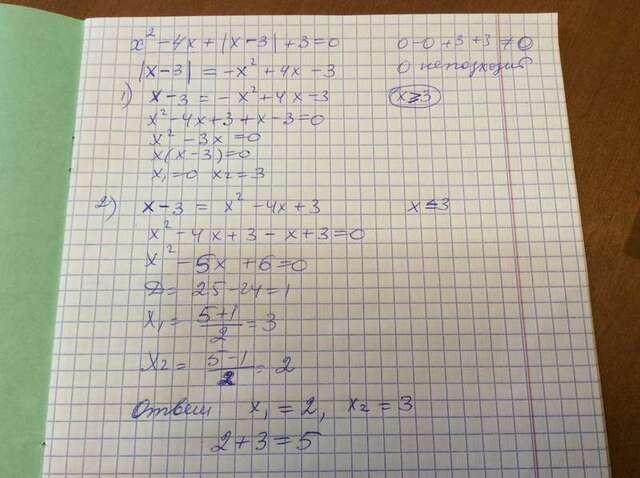 x² - 4x + |x - 3| + 3 = 0    0 - 0 + 3 + 3 ≠ 0
|x - 3| = -x² + 4x - 3    0 неподходит
1) x - 3 = -x² + 4x - 3    x ⩾ 3
x² - 4x + 3 + x - 3 = 0
x² - 3x = 0
x(x - 3) = 0
x₁ = 0 x₂ = 3
2) x - 3 = x² - 4x + 3    x ⩽ 3
x² - 4x + 3 - x + 3 = 0
x² - 5x + 6 = 0
D = 25 - 24 = 1
x₁ = (5+1)/2 = 3
x₂ = (5-1)/2 = 2
Ответ x₁ = 2, x₂ = 3
2 + 3 = 5